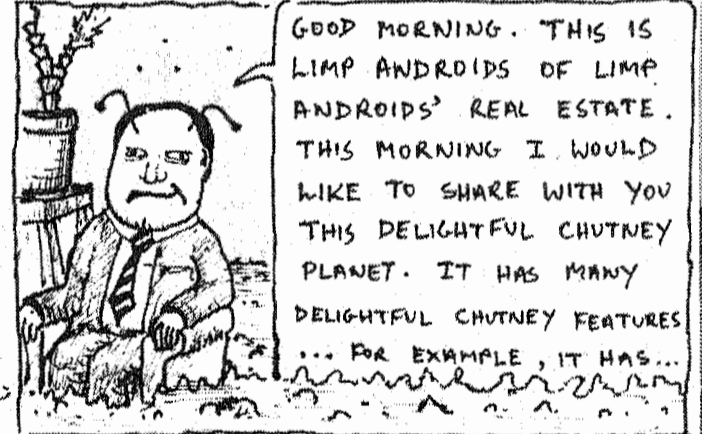 GOOD MORNING. THIS IS
LIMP ANDROIDS OF LIMP
ANDROIDS' REAL ESTATE.
THIS MORNING I WOULD
LIKE TO SHARE WITH YOU
THIS DELIGHTFUL CHUTNEY
PLANET. IT HAS MANY
DELIGHTFUL CHUTNEY FEATURES
... FOR EXAMPLE, IT HAS...